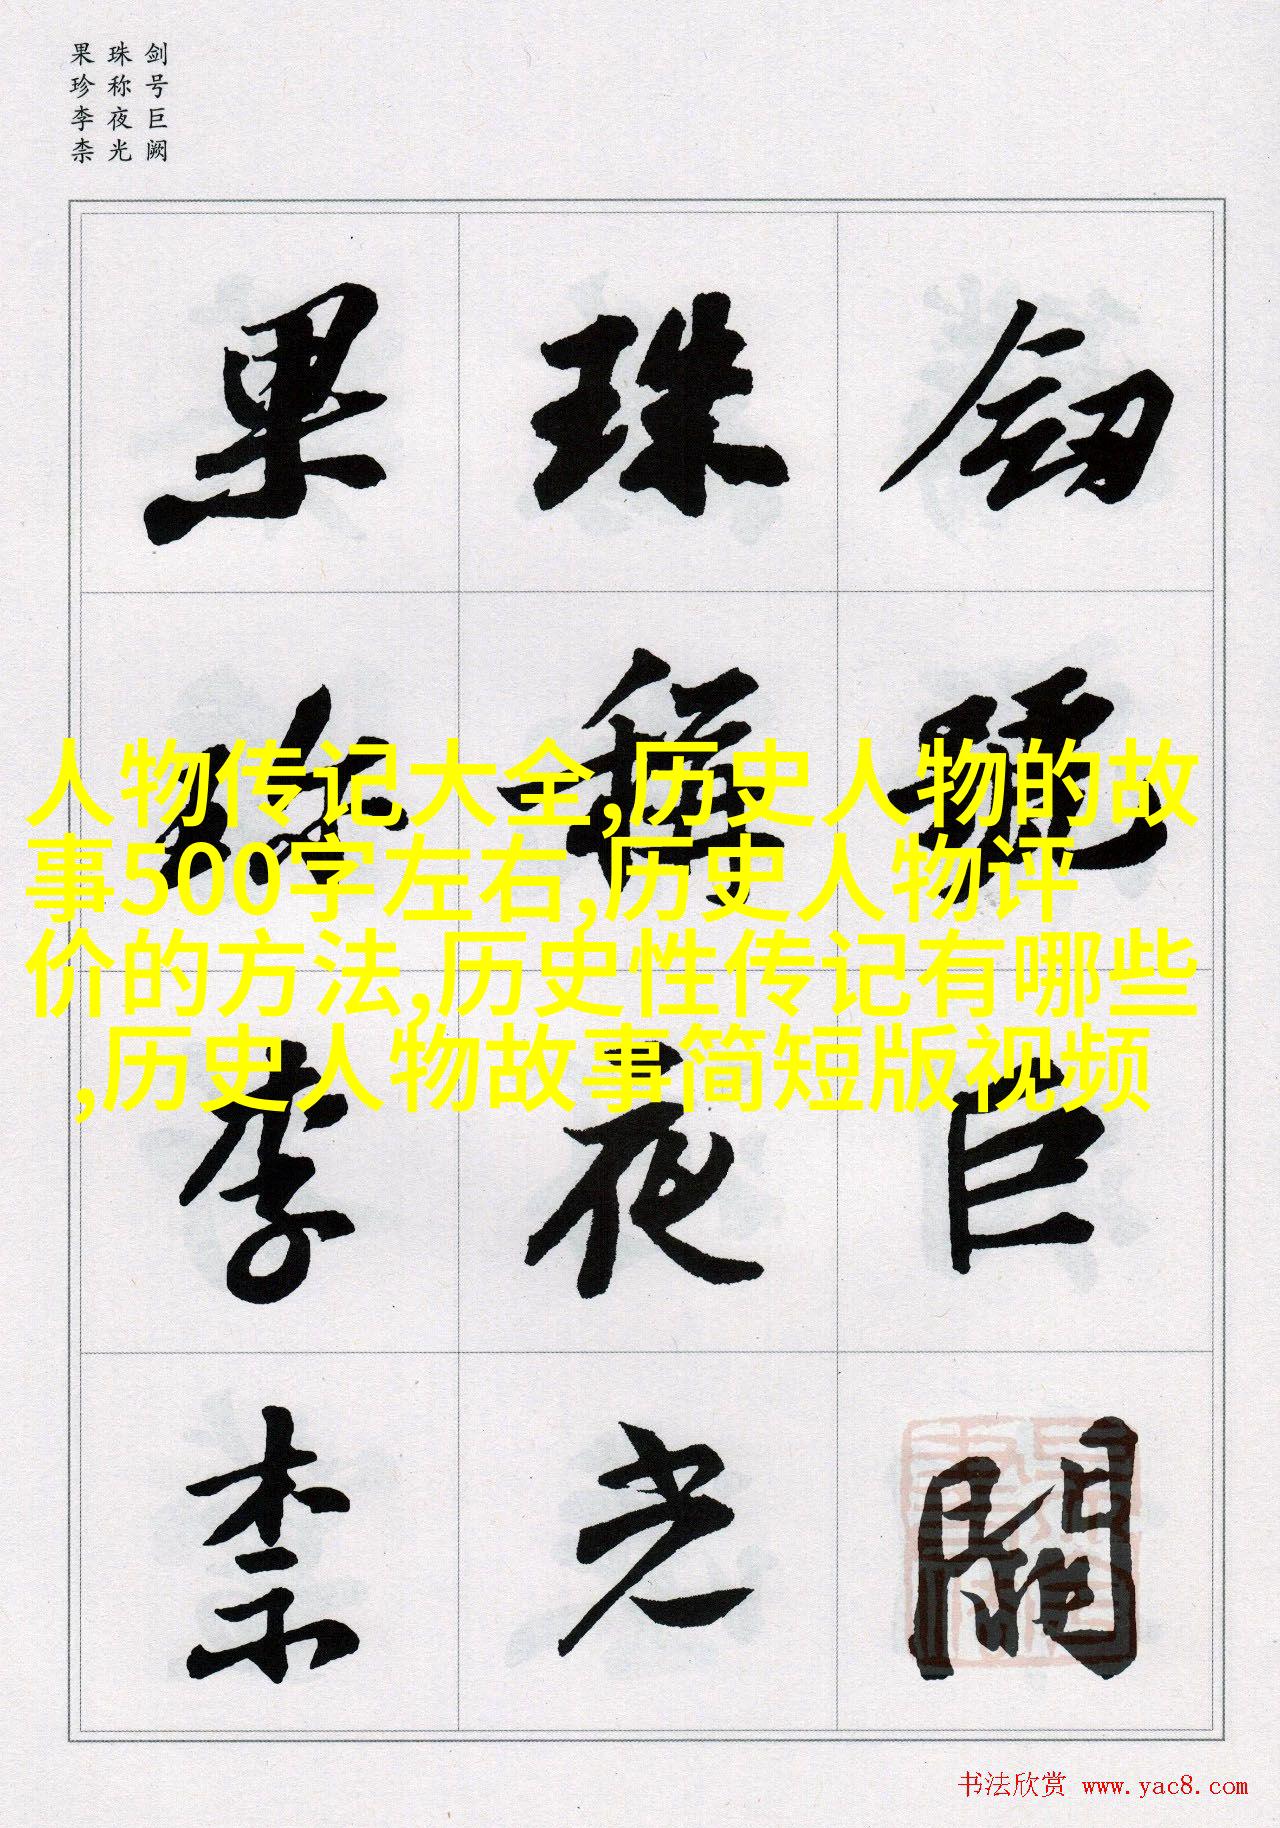 剑号巨阙
珠称夜光
果珍李柰
劒號巨闕
珠稱夜光
果珍李柰
人物传记大全,历史人物的故
事500字左右,历史人物评
价的方法,历史性传记有哪些
,历史人物故事简短版视频
书法欣赏 www.yac8.com